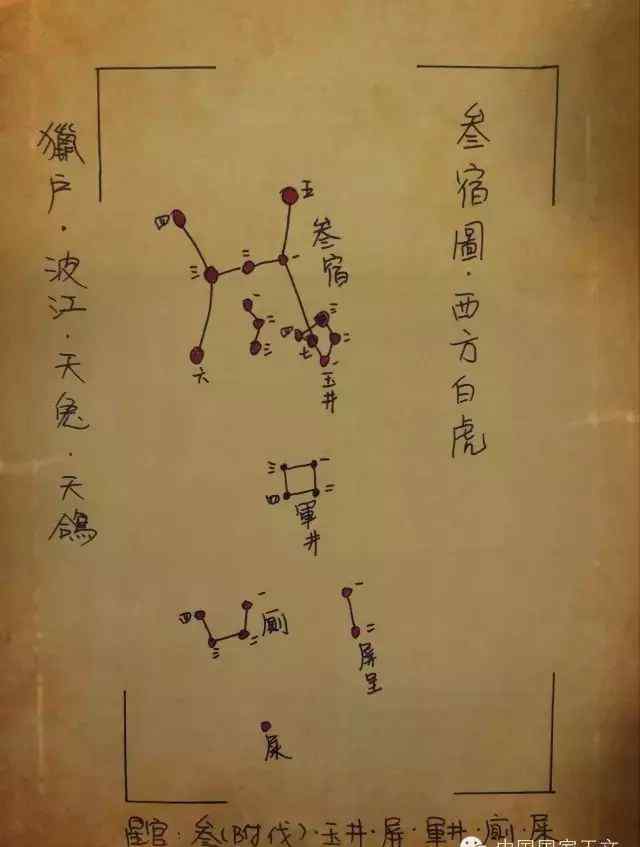 叁宿圖·西方白虎
獵户·波江·天兔·天鴿
五
四
叁宿
三
二
一
一
二
三
六
四
三
二
七
一
玉井
三
一
四
二
軍井
一
四
廁
三
二
一
二
屏星
屎
星官：叁(附伐)·玉井·屏·軍井·廁·屎
中国国家天文